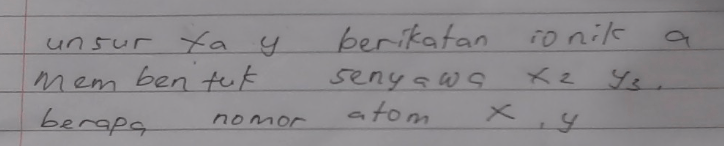 unsur xa y berikatan ionik a
membentuk senyawa x2 y3.
berapa nomor atom x, y